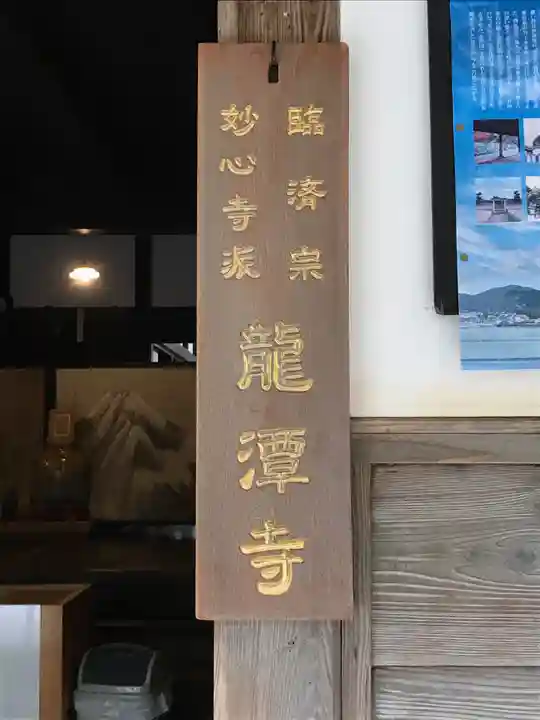 臨済宗
妙心寺派
龍潭寺